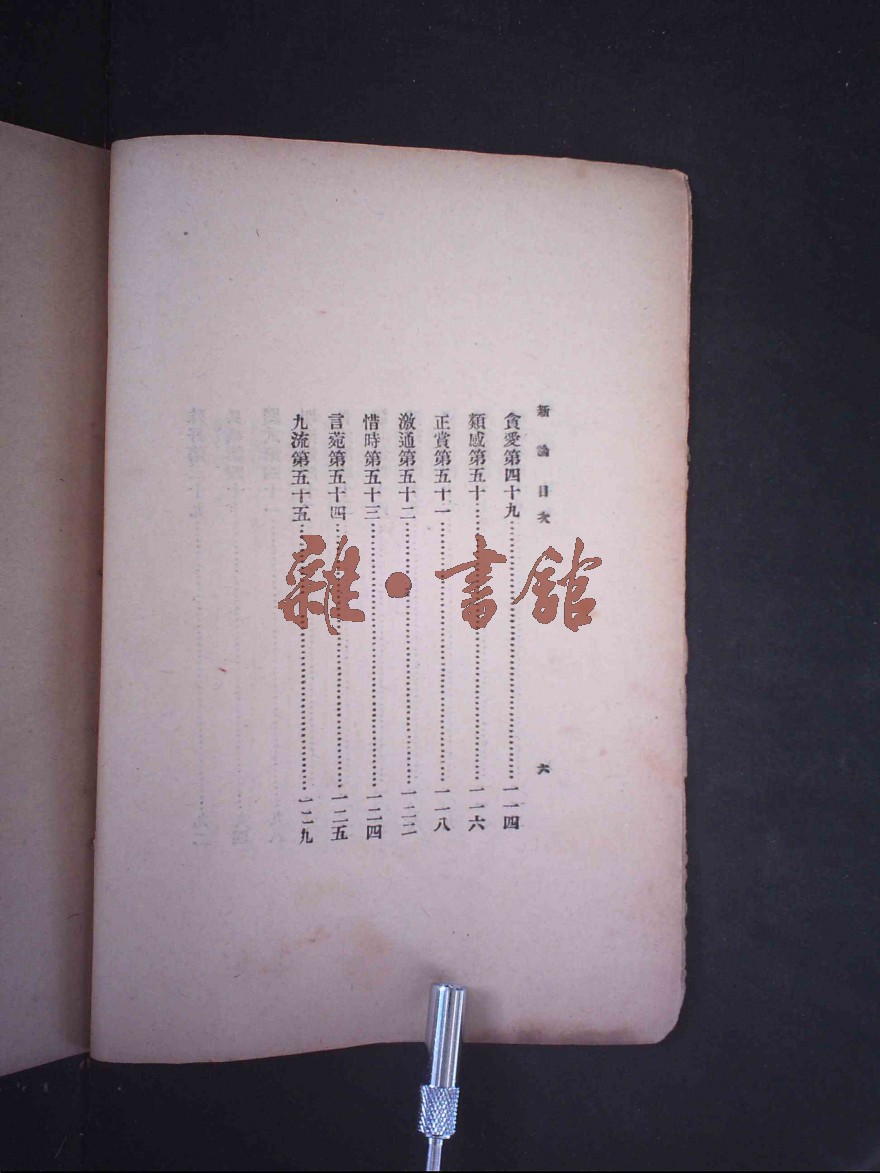 新論 目次 六
貪愛第四十九……一一四
類感第五十……一一六
正賞第五十一……一一八
激通第五十二……一二二
惜時第五十三……一二四
言苑第五十四……一二五
九流第五十五……一二九
雜·書館